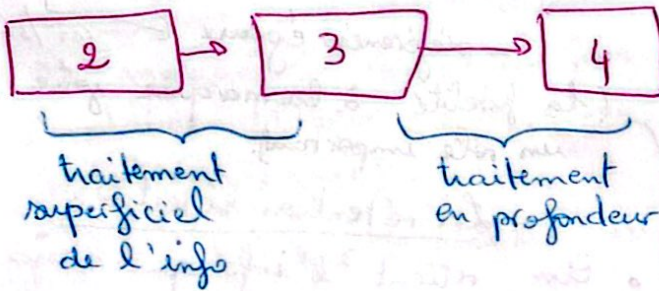 2 3 4
traitement
superficiel
de l'info
traitement
en profondeur